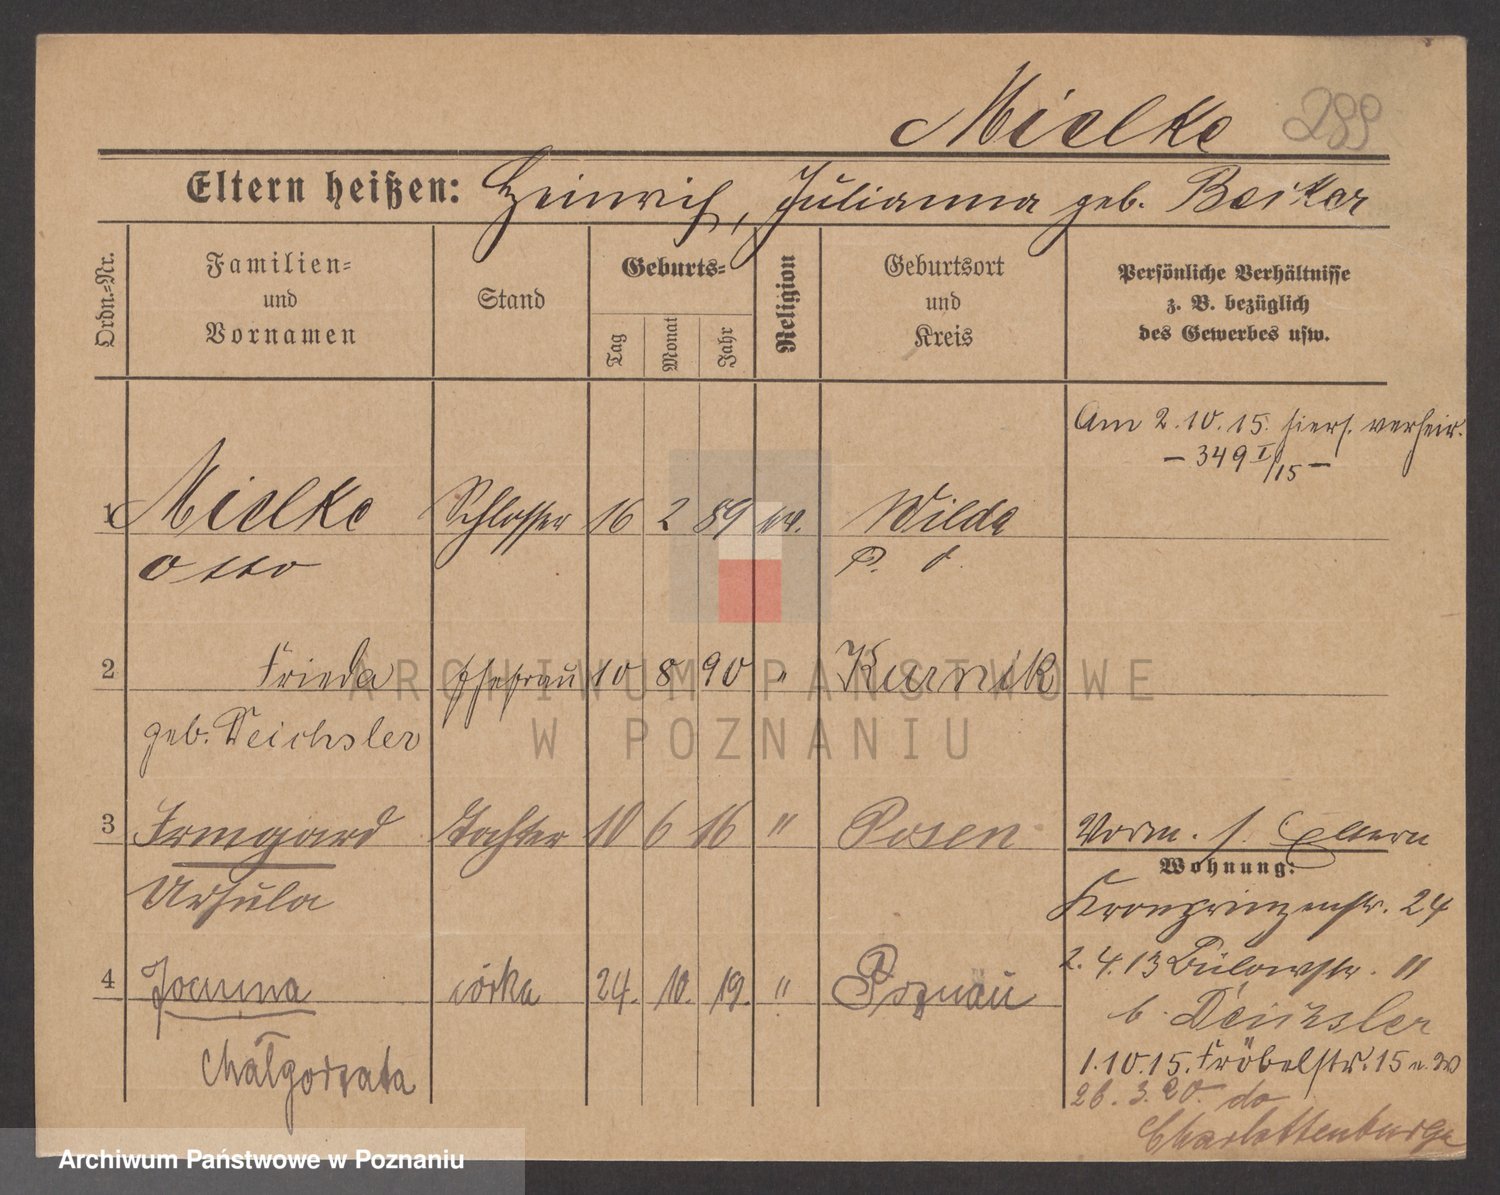 Mielke 289
Eltern heißen: Heinrich, Julianna geb. Becker
Ordn.=Nr.
Familien=
und
Vornamen
Stand
Geburts=
Tag
Monat
Jahr
Religion
Geburtsort
und
Kreis
Persönliche Verhältnisse
z. B. bezüglich
des Gewerbes usw.
Am 2.10.15. hiers. verheir.
- 349 I/15 -
1 Mielke Schlosser 16 2 89 ev. Wilda
Otto P. O.
2 Frieda Ehefrau 10 8 90 " Kurnik
geb. Deichsler
3 Irmgard Tochter 10 6 16 " Posen
Ursula
Vorm. s. Eltern
Wohnung:
Kronprinzenstr. 24
2.4.13 Bülowstr. "
b. Deichsler
4 Joanna córka 24. 10. 19. " Poznań
Małgorzata
1.10.15. Fröbelstr. 15
26.3.20. do
Charlottenburga
ARCHIWUM PAŃSTWOWE
W POZNANIU
Archiwum Państwowe w Poznaniu